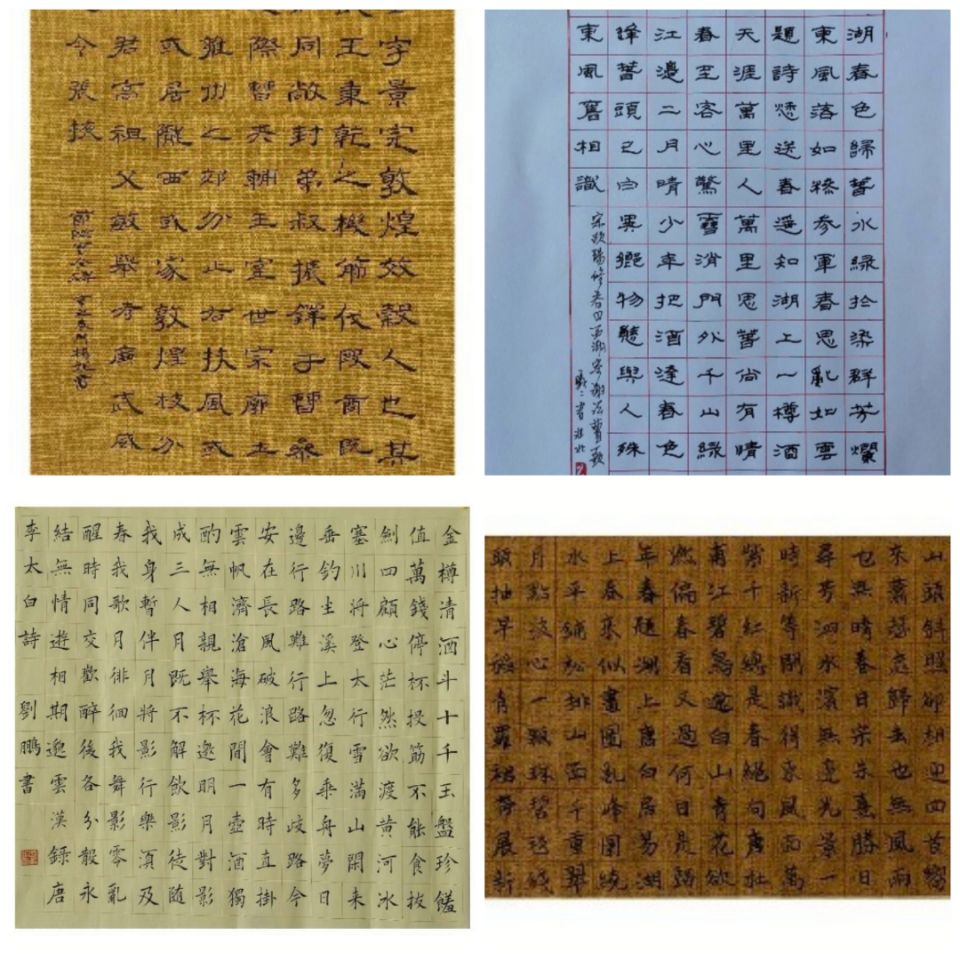 字景完敦煌效穀人也其
王秉乾之機翦伐殷商既
同敞封弟叔振鐸于曹衆
際曹夾輔王室世宗廓土
雍州之郊分止右扶風或
或居隴西或家敦煌枝分
君高祖父敏舉孝廉武威
令張掖
湖春色歸春水綠於染群芳爛
東風落如糝參軍春思亂如雲
題詩愁送春遥知湖上一樽酒
天涯萬里人萬里思春尚有情
春至客心驚雪消門外千山綠
江邊二月晴少年把酒逢春色
逢春頭已白異鄉物態與人殊
東風舊相識
宋歐陽修春日西湖寄謝法曹歌
金樽清酒斗十千玉盤珍饈
值萬錢停杯投筯不能食拔
劍四顧心茫然欲渡黃河冰
塞川將登太行雪滿山閑來
垂釣坐溪上忽復乘舟夢日
邊行路難行路難多歧路今
安在長風破浪會有時直掛
雲帆濟滄海花間一壺酒獨
酌無相親舉杯邀明月對影
成三人月既不解飲影徒隨
我身暫伴月將影行樂須及
春我歌月徘徊我舞影零亂
醒時同交歡醉後各分散永
結無情遊相期邈雲漢錄唐
李太白詩 劉鵬書
山頭斜照却相迎回首嚮
來蕭瑟處歸去也無風雨
也無晴春日宋朱熹勝日
尋芳泗水濱無邊光景一
時新等閒識得東風面萬
紫千紅總是春絕句唐杜
甫江碧鳥逾白山青花欲
燃春看又過何日是歸
年春題湖上唐白居易湖
上春來似畫圖亂峰圍繞
水平鋪松排山面千重翠
月點波心一顆珠碧毯綫
頭抽早稻青羅裙帶展新